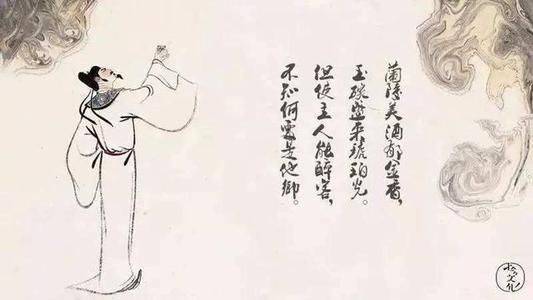 蘭陵美酒郁金香，
玉碗盛来琥珀光。
但使主人能醉客，
不知何處是他鄉。
文化